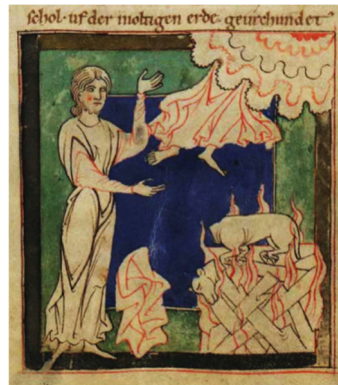 ſchol· uf der moltigen erde· geurchundet